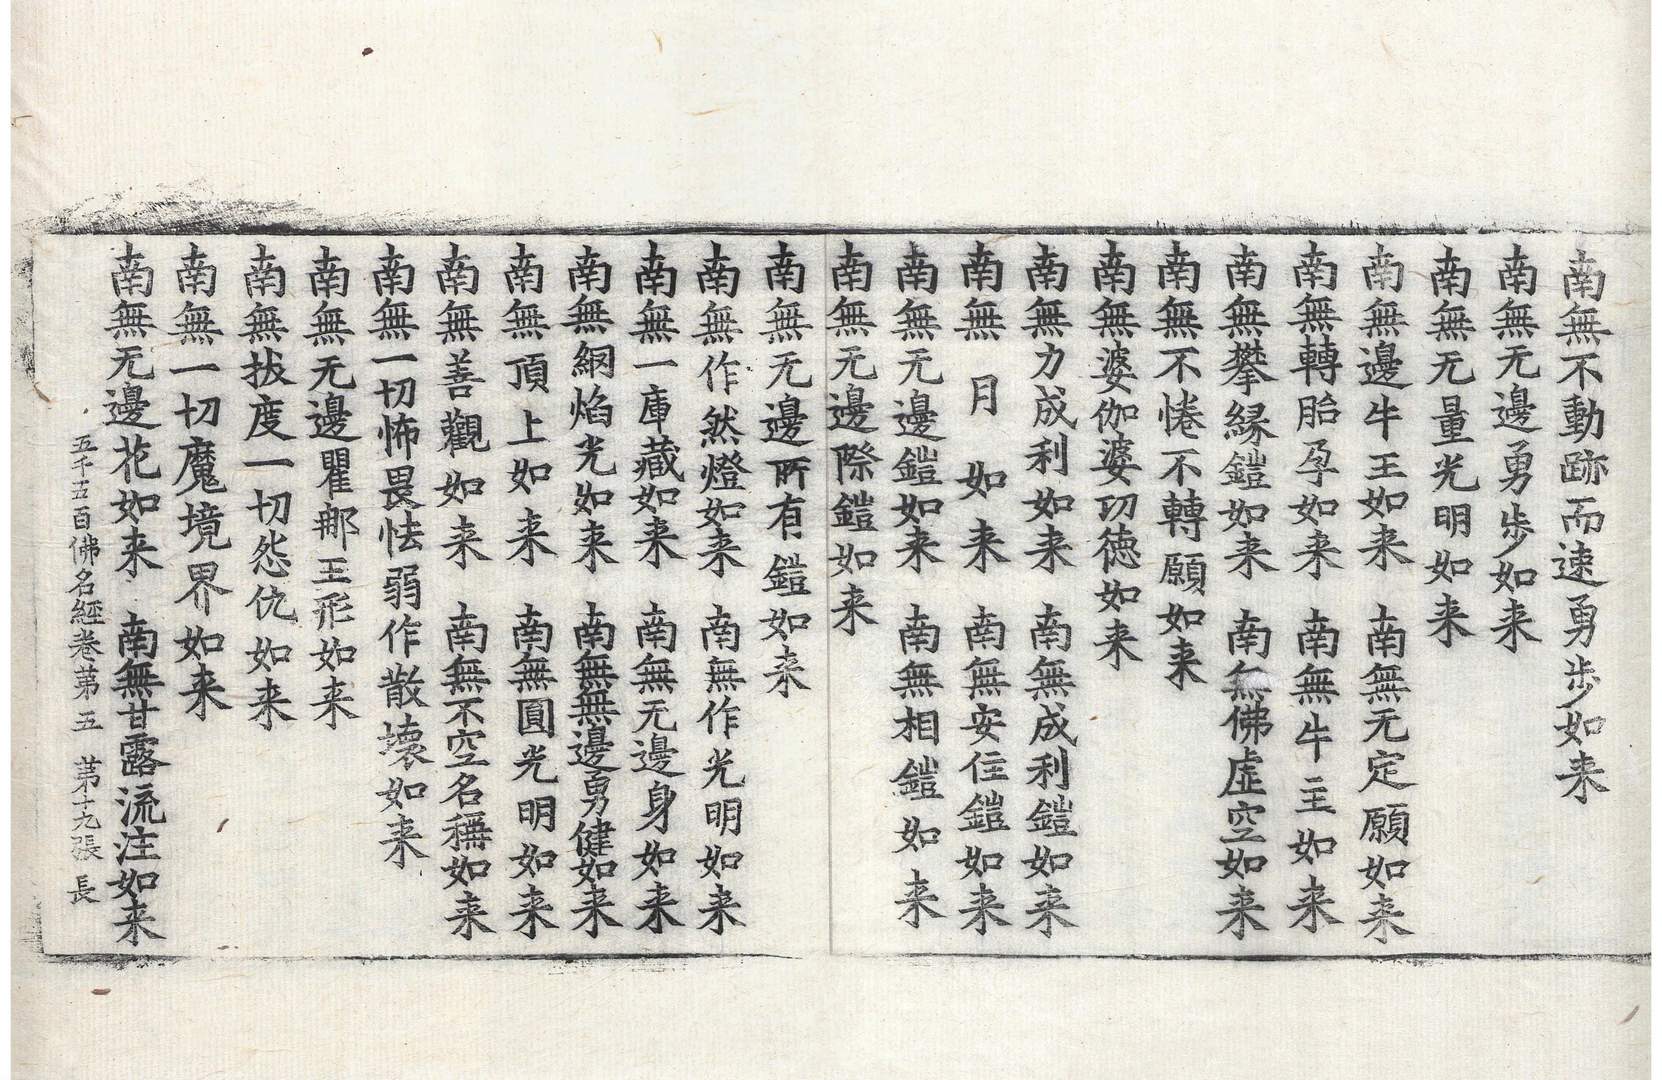 南無不動跡而速勇步如来
南無无邊勇步如来
南無无量光明如来
南無邊牛王如来　南無无定願如来
南無轉胎孕如来　南無牛主如来
南無攀緣鎧如来　南無佛虛空如来
南無不惓不轉願如来
南無婆伽婆功徳如来
南無力成利如来　南無成利鎧如来
南無月如来　南無安住鎧如来
南無无邊鎧如来　南無相鎧如来
南無无邊際鎧如来
南無无邊所有鎧如来
南無作然燈如来　南無作光明如来
南無一庫藏如来　南無无邊身如来
南無網焰光如来　南無無邊勇健如来
南無頂上如来　南無圓光明如来
南無善觀如来　南無不空名稱如来
南無一切怖畏怯弱作散壞如来
南無无邊瞿那王形如来
南無拔度一切怨仇如来
南無一切魔境界如来
南無无邊花如来　南無甘露流注如来
五千五百佛名經卷苐五　苐十九張　長